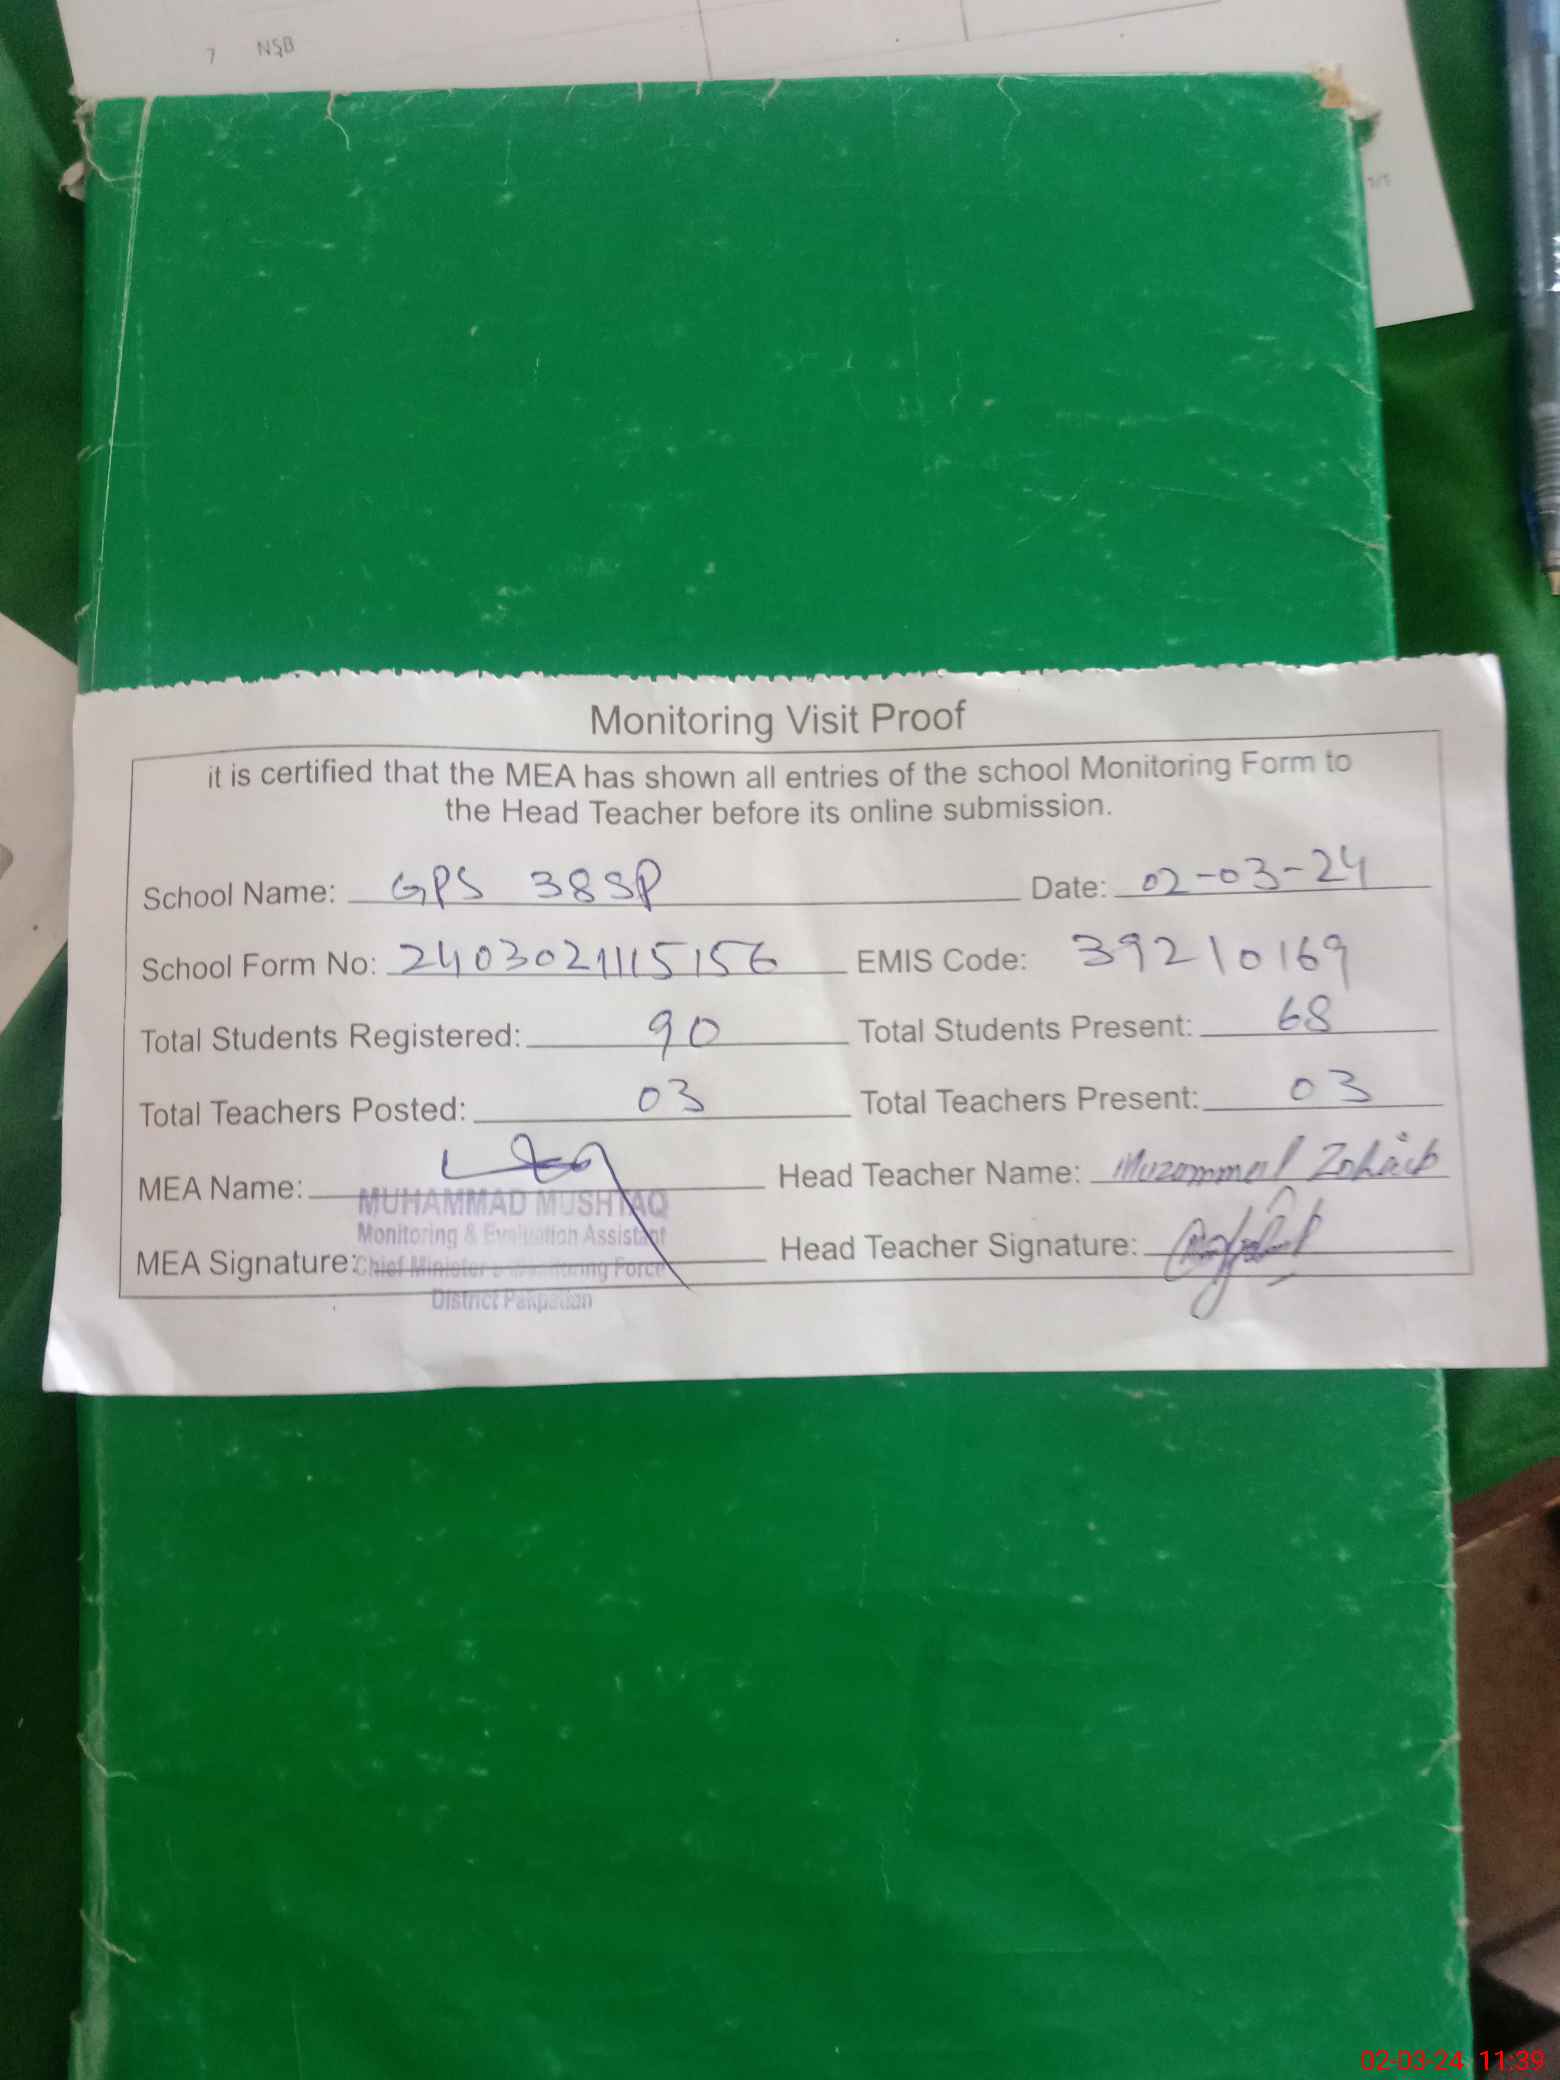 7 NSB
Monitoring Visit Proof
it is certified that the MEA has shown all entries of the school Monitoring Form to
the Head Teacher before its online submission.
School Name: GPS 38SP Date: 02-03-24
School Form No: 2403021115156 EMIS Code: 39210169
Total Students Registered: 90 Total Students Present: 68
Total Teachers Posted: 03 Total Teachers Present: 03
MEA Name: Head Teacher Name: Muzammal Zohaib
MUHAMMAD MUSHTAQ
Monitoring & Evaluation Assistant
MEA Signature: Head Teacher Signature:
Chief Minister Monitoring Force
District Pakpattan
02-03-24 11:39